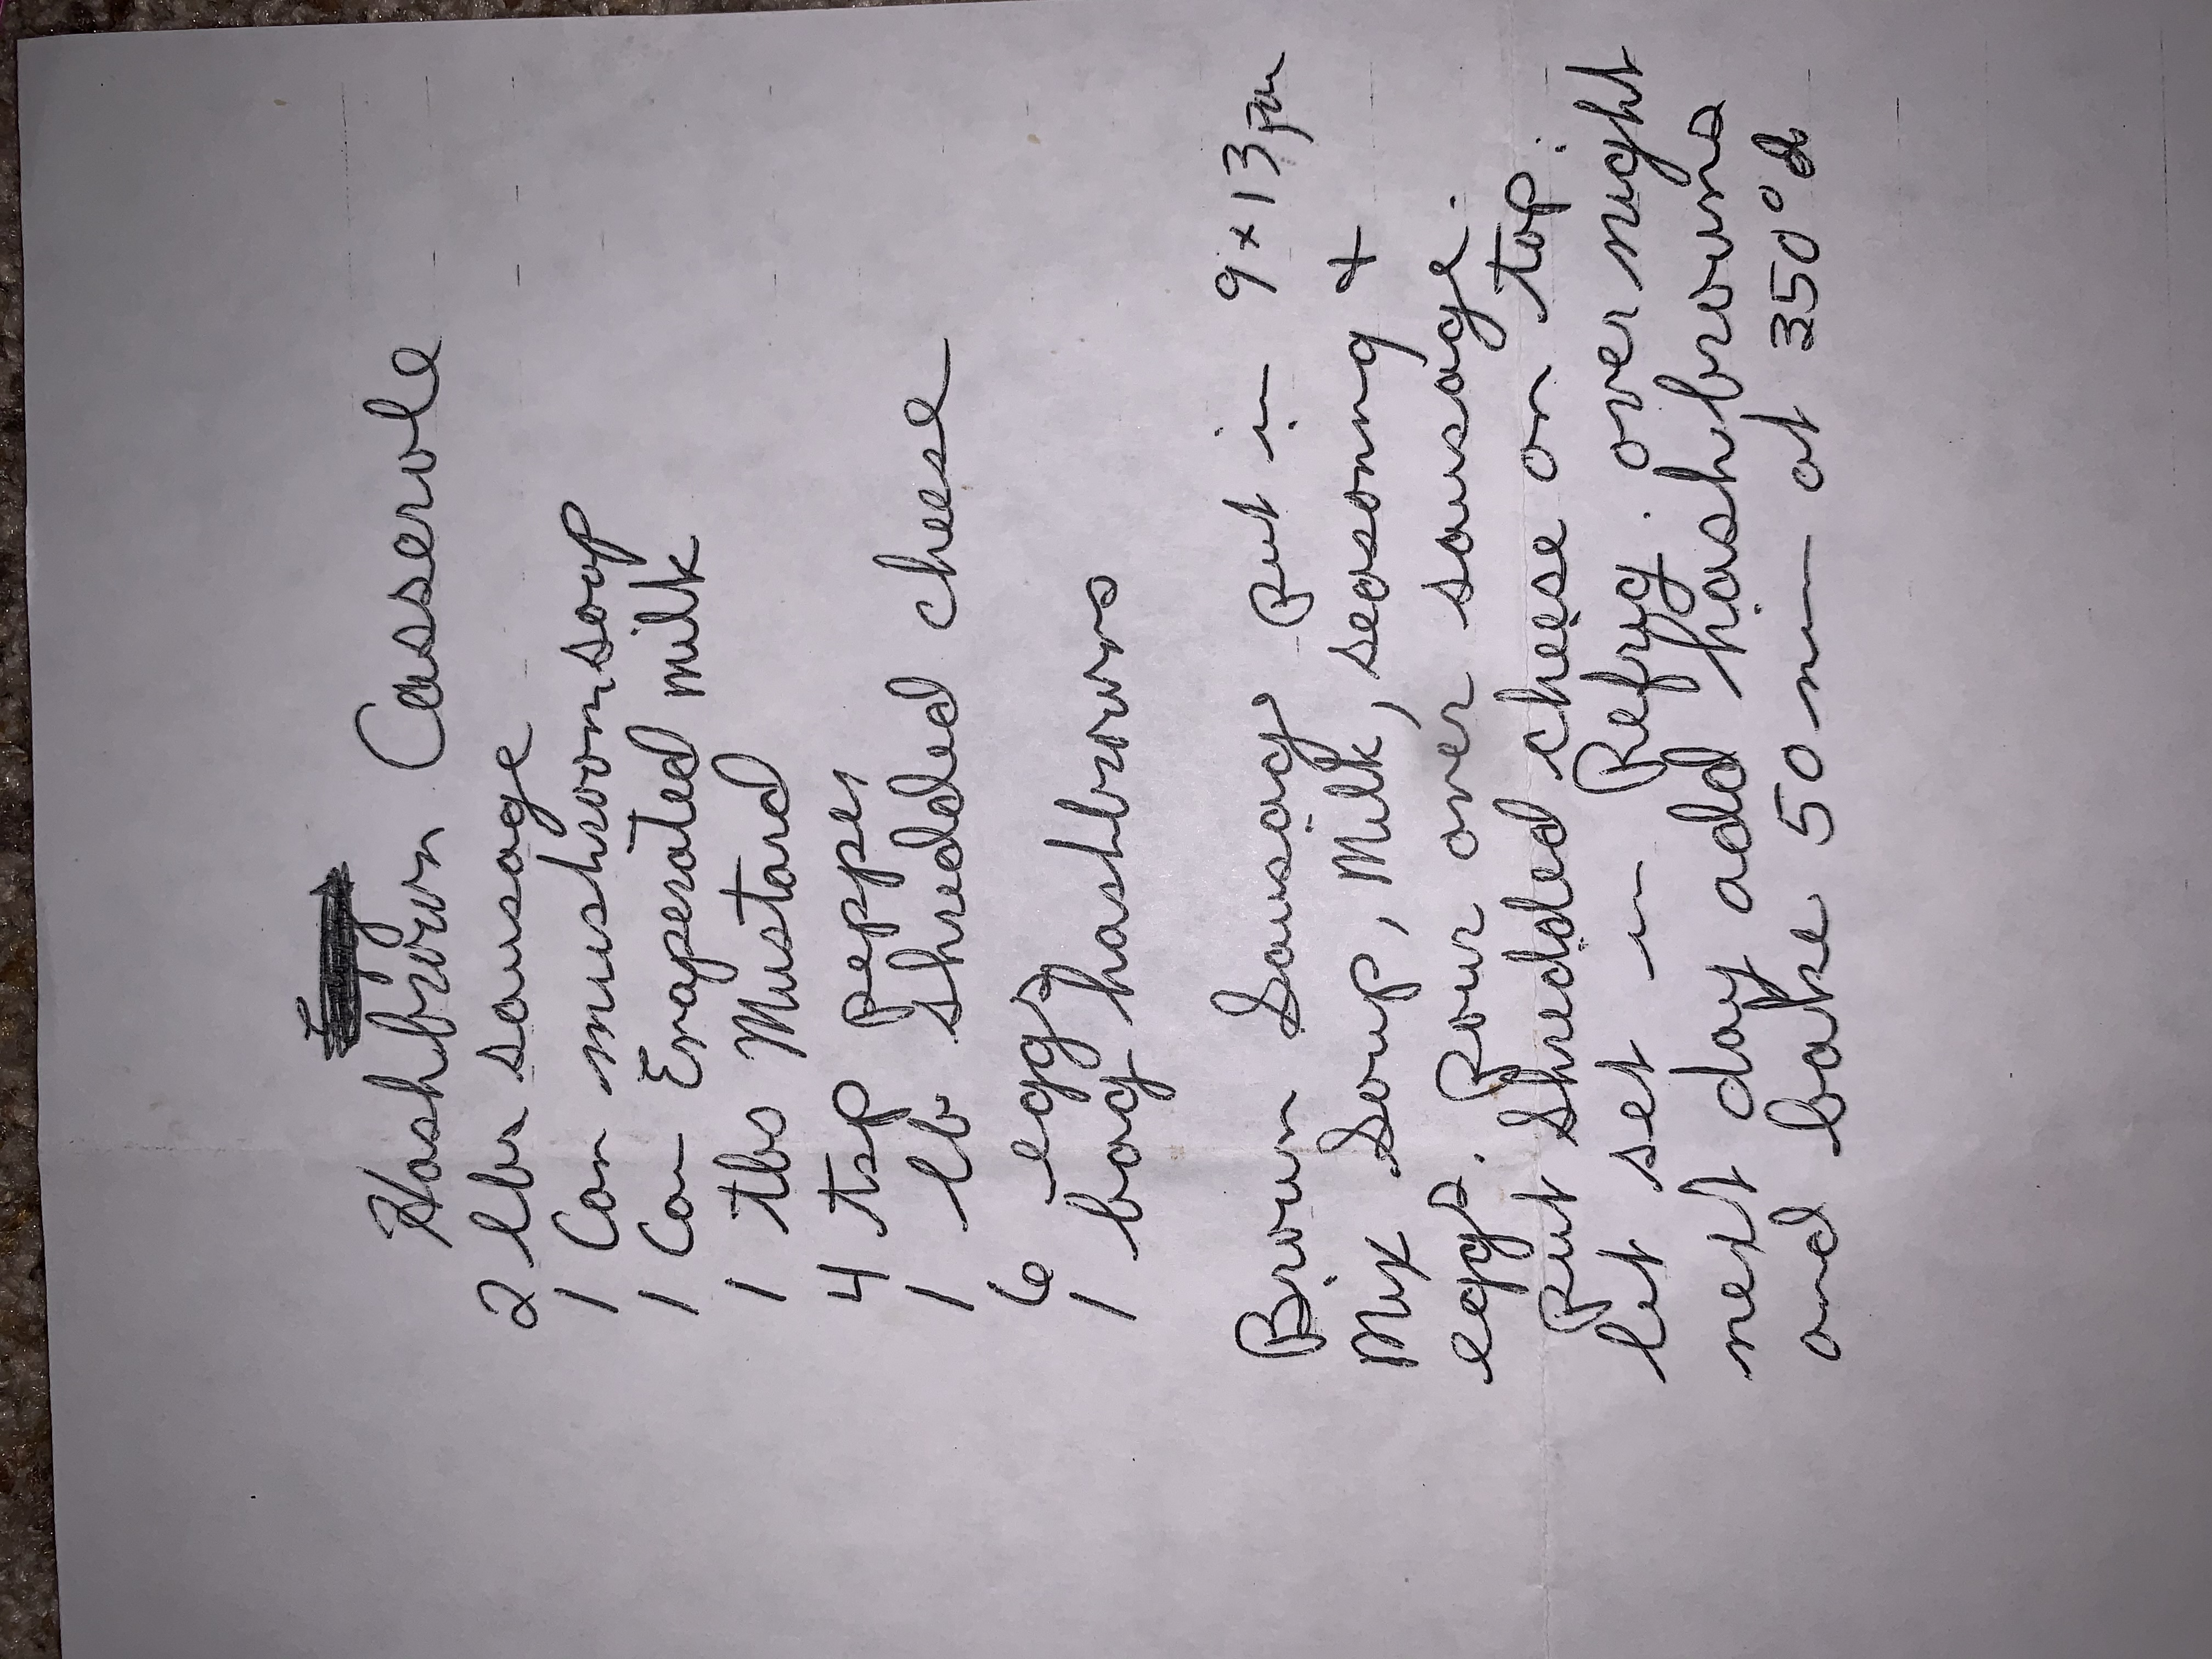 Hashbrown Casserole
2 lbs sausage
1 Can mushroom soup
1 Can Evaperated milk
1 tbs Mustard
4 tsp pepper
1 lb shredded cheese
6 eggs
1 bag hashbrowns
Brown Sausage put in 9x13 pan
Mix Soup, Milk, seasonng &
eggs. pour over sausage.
put Shredded cheese on top.
let set in Refrig. over night
next day add hashbrowns
and bake 50 min at 350°